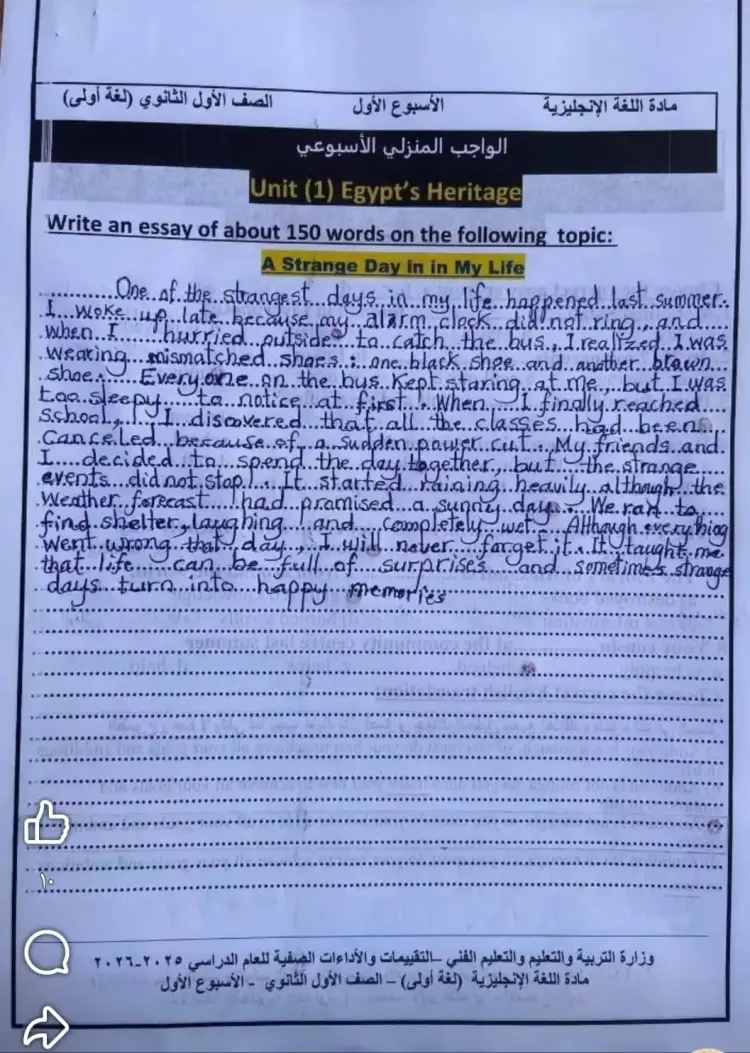 مادة اللغة الإنجليزية الأسبوع الأول الصف الأول الثانوي (لغة أولى)
الواجب المنزلي الأسبوعي
Unit (1) Egypt's Heritage
Write an essay of about 150 words on the following topic:
A Strange Day in in My Life
One of the strangest days in my life happened last summer.
I woke up late because my alarm clock did not ring, and
when I hurried outside to catch the bus, I realized I was
wearing mismatched shoes: one black shoe and another brown
shoe. Everyone on the bus kept staring at me, but I was
too sleepy to notice at first. When I finally reached
school, I discovered that all the classes had been
canceled because of a sudden power cut. My friends and
I decided to spend the day together, but the strange
events did not stop!. It started raining heavily although the
weather forecast had promised a sunny day. We ran to
find shelter, laughing and completely wet. Although everything
went wrong that day, I will never forget it. It taught me
that life can be full of surprises and sometimes strange
days turn into happy memories
١٠
وزارة التربية والتعليم والتعليم الفني –التقييمات والأداءات الصفية للعام الدراسي ٢٠٢٥-٢٠٢٦
مادة اللغة الإنجليزية (لغة أولى) – الصف الأول الثانوي - الأسبوع الأول